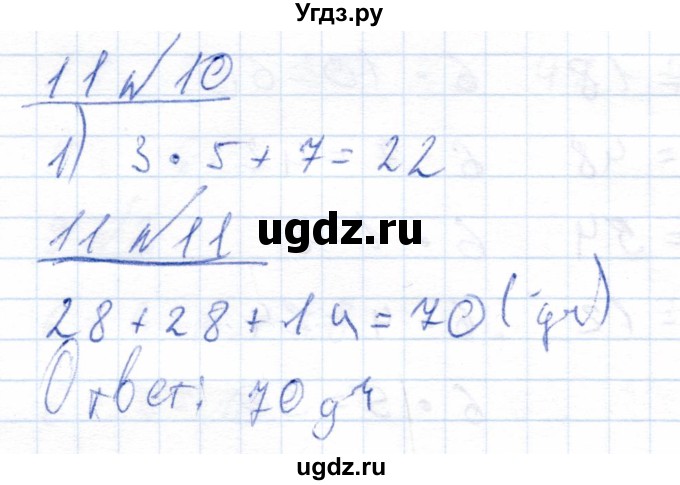 Угдз.ру
11 № 10
1) 3 · 5 + 7 = 22
11 № 11
ugdz.ru
28 + 28 + 14 = 70 (дч)
Ответ: 70 дч
ugdz.ru